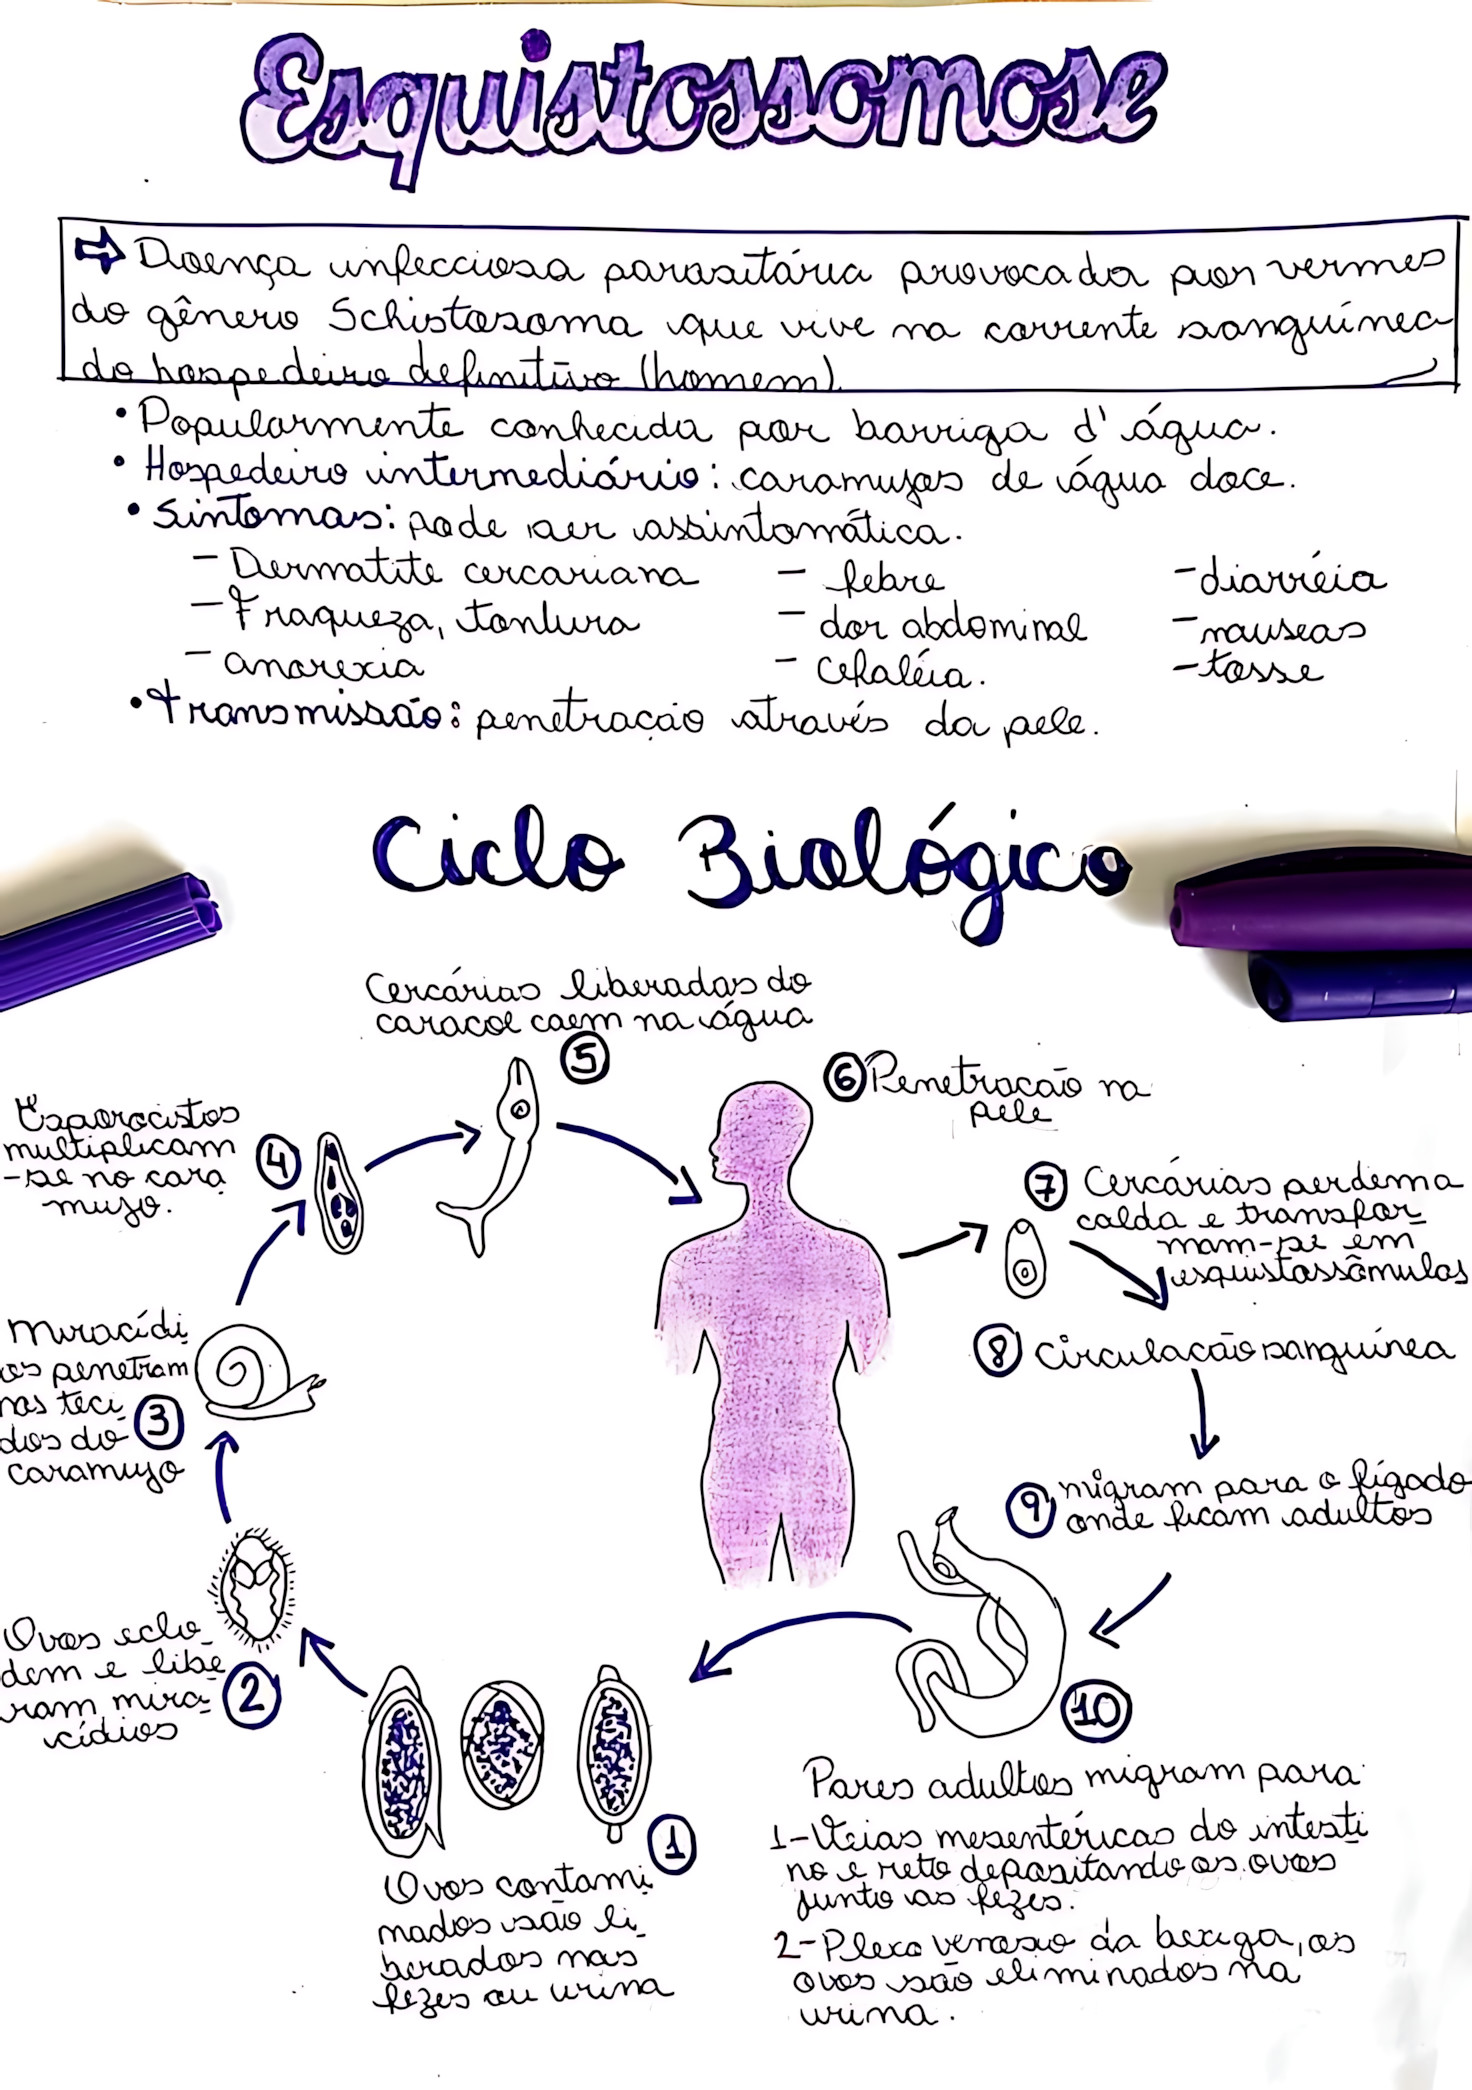 Esquistossomose
⇨ Doença infecciosa parasitária provocada por vermes
do gênero Schistosoma que vive na corrente sanguínea
do hospedeiro definitivo (homem).
• Popularmente conhecida por barriga d'água.
• Hospedeiro intermediário: caramujos de água doce.
• Sintomas: pode ser assintomática.
- Dermatite cercariana - febre - diarréia
- Fraqueza, tontura - dor abdominal - nauseas
- anorexia - cefaléia. - tosse
• Transmissão: penetração através da pele.
Ciclo Biológico
Cercárias liberadas do
caracol caem na água
5
6 Penetracão na
pele
Esporocistos
multiplicam
-se no cara
mujo.
4
7 Cercárias perdem a
calda e transfor
mam-se em
esquistossômulos
8 Circulacão sanguínea
Miracídi
os penetram
nos teci
dos do
caramujo
3
9 migram para o fígado
onde ficam adultos
Ovos eclo
dem e libe
ram mira
cídios
2
10
Pares adultos migram para
1-Veias mesentéricas do intesti
no e reto depositando os ovos
junto as fezes.
2-Plexo venoso da bexiga, os
ovos são eliminados na
urina.
1
Ovos contami
nados são li
berados nas
fezes ou urina